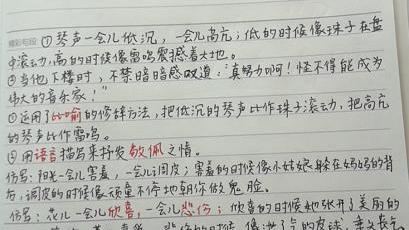 精彩句段 ①琴声一会儿低沉，一会儿高亢；低的时候像珠子在盘
中滚动，高的时候像雷鸣震撼着大地。
②当他下楼时，不禁暗暗感叹道："真努力啊！怪不得能成为
伟大的音乐家！"
①运用了比喻的修辞方法，把低沉的琴声比作珠子滚动，把高亢
的琴声比作雷鸣。
②用语言描写来抒发敬佩之情。
仿写：阳光一会儿害羞，一会儿调皮；害羞的时候像小姑娘躲在妈妈的背
后，调皮的时候像顽童不停地朝你做鬼脸。
仿写：花儿一会儿欣喜，一会儿悲伤；欣喜的时候她张开了美丽的
的时候，像泄了气的皮球，